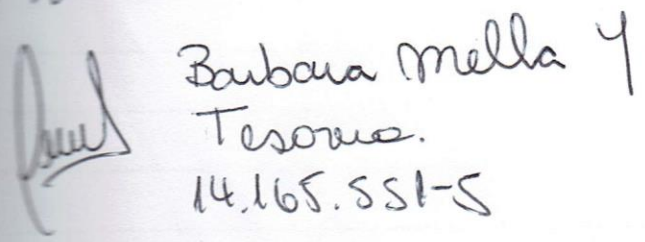 Barbara Mella Y
Tesorera.
14.165.551-5